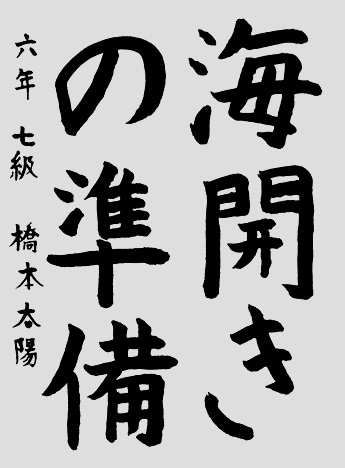 海開き
の準備
六年 七級 橋本太陽